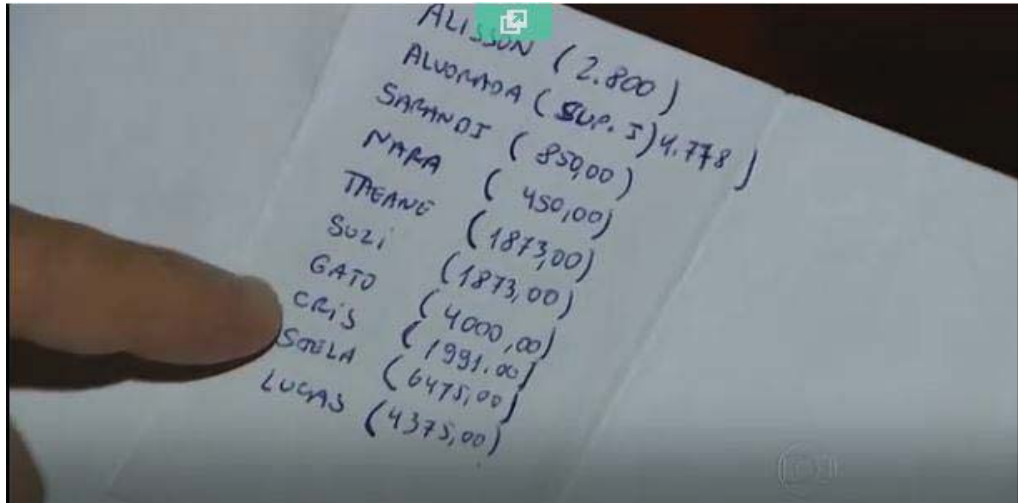 ALISSON (2.800)
ALVORADA (SUP. I) 4.778)
SARANDI (850,00)
NARA (450,00)
TAEANE (1873,00)
SUZI (1873,00)
GATO (4000,00)
CRIS (1991.00)
STELA (6475,00)
LUCAS (4375,00)